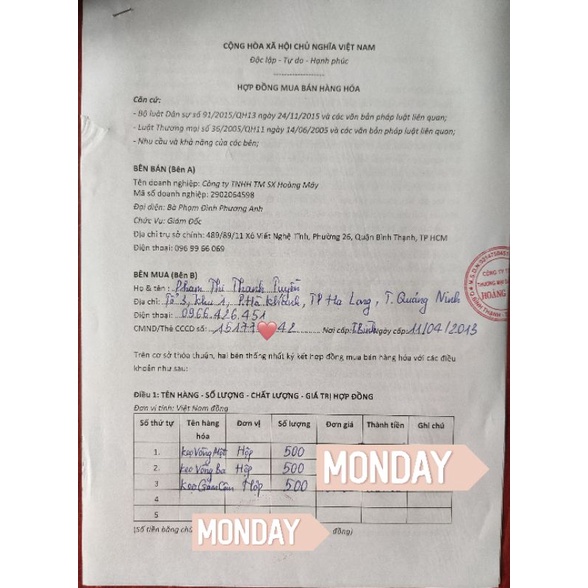 CỘNG HÒA XÃ HỘI CHỦ NGHĨA VIỆT NAM
Độc lập - Tự do - Hạnh phúc
HỢP ĐỒNG MUA BÁN HÀNG HÓA
Căn cứ:
- Bộ luật Dân sự số 91/2015/QH13 ngày 24/11/2015 và các văn bản pháp luật liên quan;
- Luật Thương mại số 36/2005/QH11 ngày 14/06/2005 và các văn bản pháp luật liên quan;
- Nhu cầu và khả năng của các bên;
BÊN BÁN (Bên A)
Tên doanh nghiệp: Công ty TNHH TM SX Hoàng Mây
Mã số doanh nghiệp: 2902064598
Đại diện: Bà Phạm Đình Phương Anh
Chức Vụ: Giám Đốc
Địa chỉ trụ sở chính: 489/89/11 Xô Viết Nghệ Tĩnh, Phường 26, Quận Bình Thạnh, TP HCM
Điện thoại: 096 99 66 069
BÊN MUA (Bên B)
Họ & tên: Phạm Thị Thanh Tuyền
Địa chỉ: Tổ 3, Khu 1, P. Hà Khánh, TP Hạ Long, T. Quảng Ninh
Điện thoại: 0966.426.451
CMND/Thẻ CCCD số: 15177 42 Nơi cấp: TBình Ngày cấp: 11/04/2013
CÔNG TY
HOÀNG
Trên cơ sở thỏa thuận, hai bên thống nhất ký kết hợp đồng mua bán hàng hóa với các điều
khoản như sau:
Điều 1: TÊN HÀNG - SỐ LƯỢNG - CHẤT LƯỢNG - GIÁ TRỊ HỢP ĐỒNG
Đơn vị tính: Việt Nam đồng
Số thứ tự Tên hàng hóa Đơn vị Số lượng Đơn giá Thành tiền Ghi chú
1. Kẹo Vòng Một Hộp 500
2. Kẹo Vòng Ba Hộp 500
3 Kẹo Giảm Cân Hộp 500
4
5
MONDAY
MONDAY
(Số tiền bằng chữ đồng)